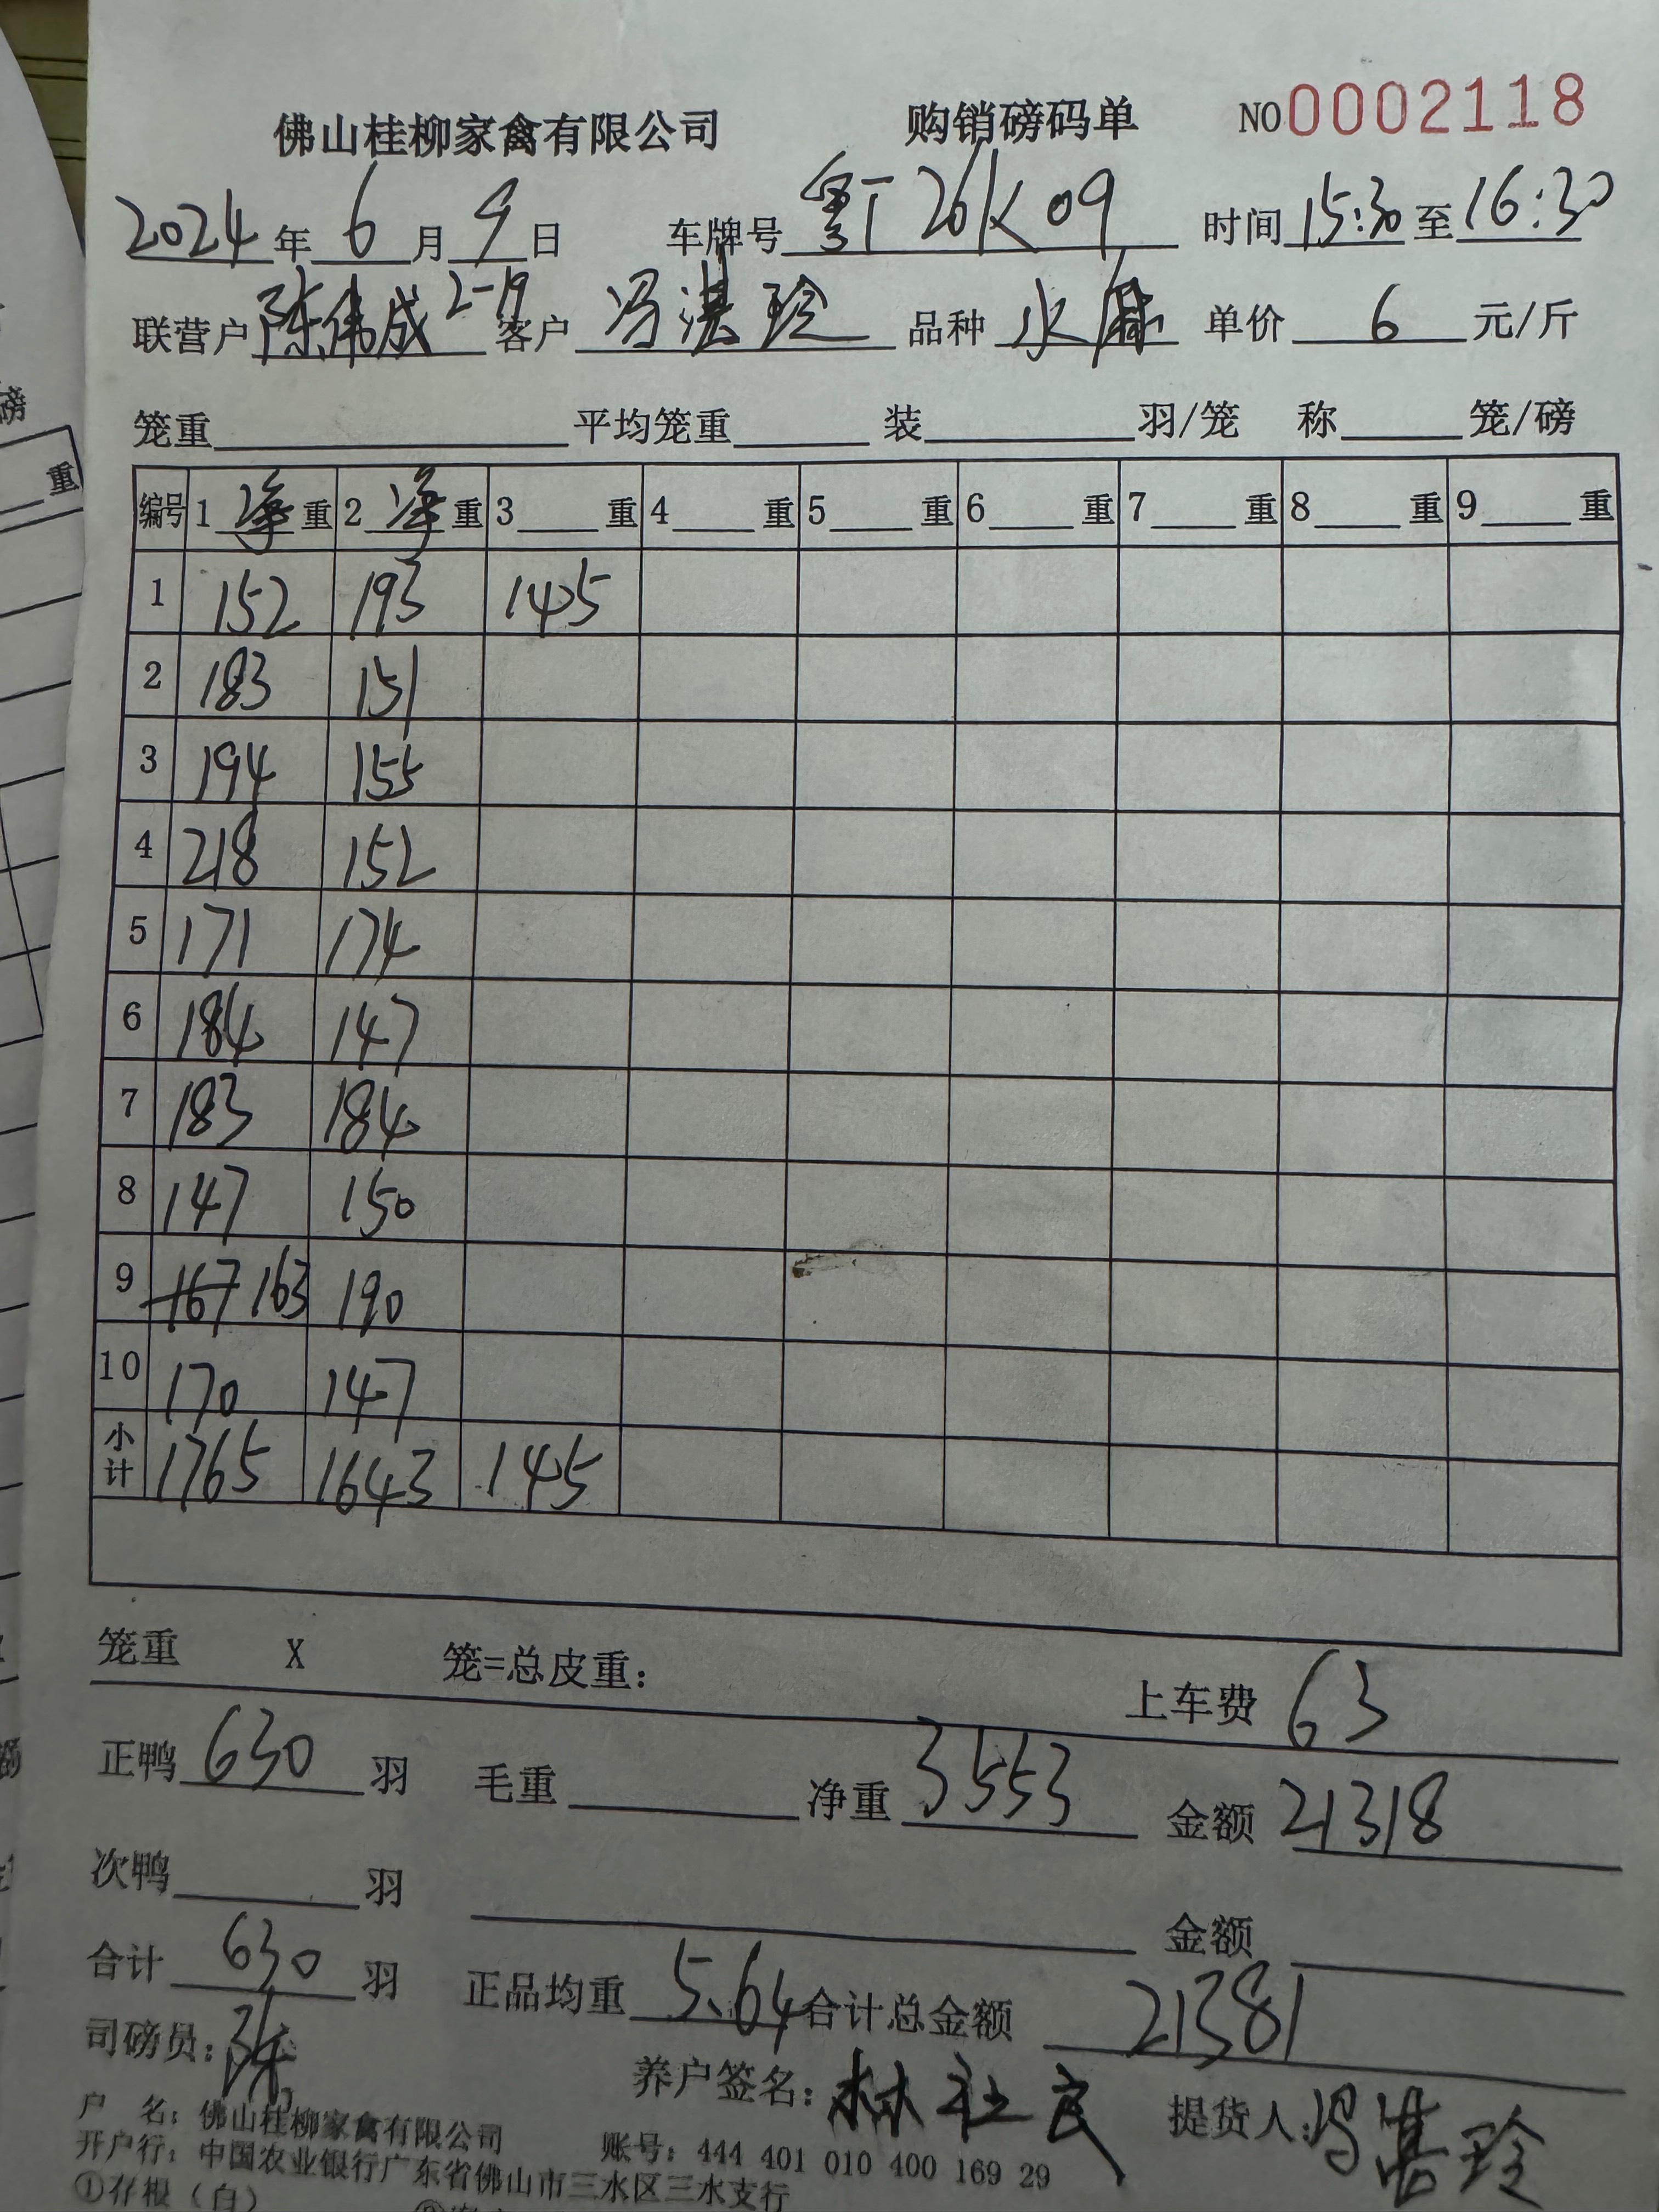 佛山桂柳家禽有限公司 购销磅码单 NO 0002118
2024年6月9日 车牌号 粤T26K09 时间 15:30 至 16:30
联营户 陈伟成 2-19 客户 冯湛玲 品种 水麻 单价 6 元/斤
笼重 平均笼重 装 羽/笼 称 笼/磅
编号 1 净 重 2 净 重 3 重 4 重 5 重 6 重 7 重 8 重 9 重
1 152 193 145
2 183 151
3 194 155
4 218 152
5 171 174
6 184 147
7 183 184
8 147 150
9 167 163 190
10 170 147
小计 1765 1643 145
笼重 X 笼=总皮重: 上车费 63
正鸭 630 羽 毛重 净重 3553 金额 21318
次鸭 羽 金额
合计 630 羽 正品均重 5.64 合计总金额 21381
司磅员: 陈 养户签名: 林社良 提货人: 冯甚玲
户 名: 佛山桂柳家禽有限公司 账号: 444 401 010 400 169 29
开户行: 中国农业银行广东省佛山市三水区三水支行
①存根(白)